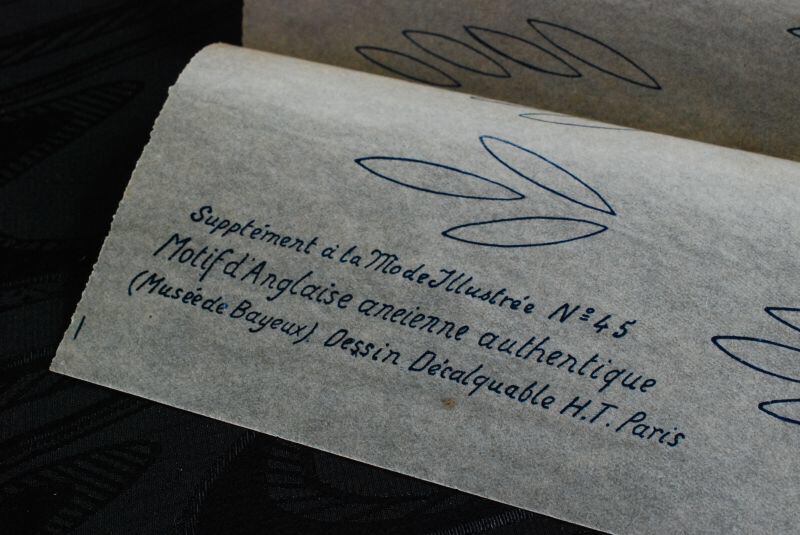 Supptément à la Mode Illustrée Nº 45
Motif d'Anglaise aneienne authentique
(Musée de Bayeux). Dessin Décalquable H.T. Paris